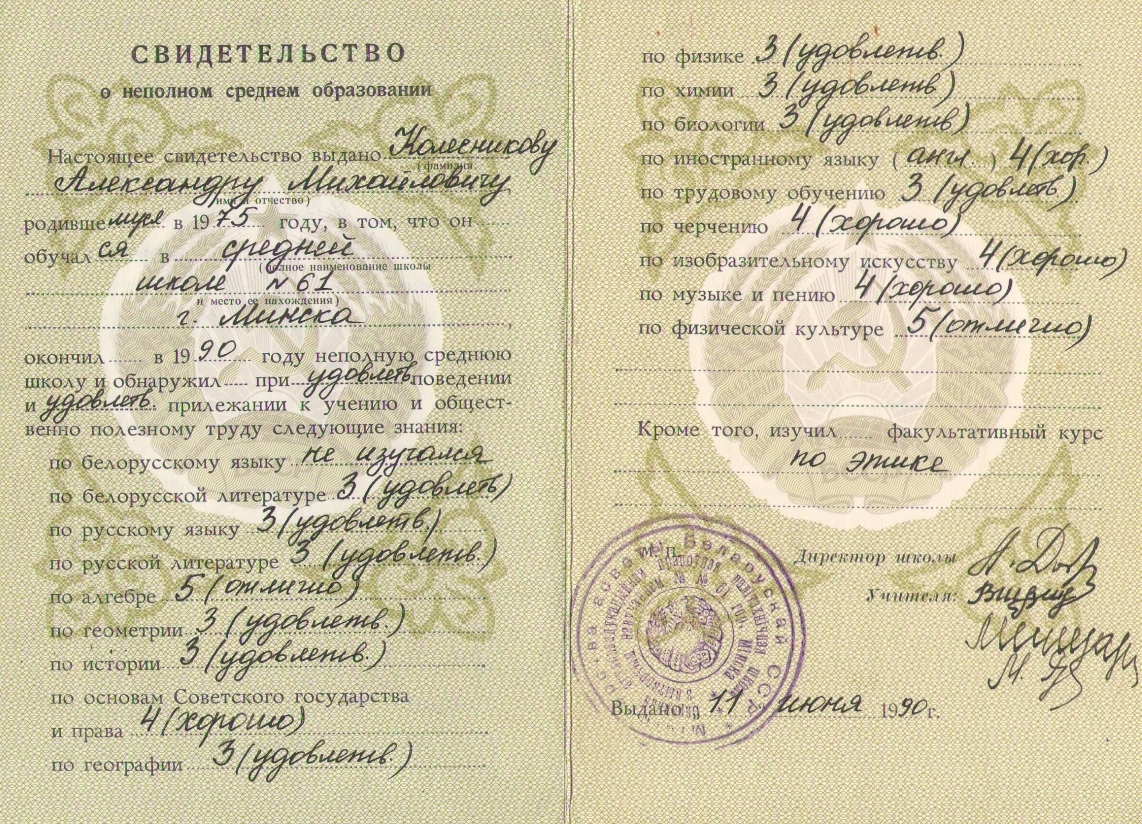 СВИДЕТЕЛЬСТВО
о неполном среднем образовании
Настоящее свидетельство выдано Колесникову
(фамилия,
Александру Михайловичу
имя и отчество)
родившемуся в 1975 году, в том, что он
обучался в средней
(полное наименование школы
школе №61
и место ее нахождения)
г. Минска,
окончил в 1990 году неполную среднюю
школу и обнаружил при удовлетв. поведении
и удовлетв. прилежании к учению и общест-
венно полезному труду следующие знания:
по белорусскому языку не изучался
по белорусской литературе 3 (удовлетв)
по русскому языку 3 (удовлетв.)
по русской литературе 3 (удовлетв.)
по алгебре 5 (отлично)
по геометрии 3 (удовлетв.)
по истории 3 (удовлетв.)
по основам Советского государства
и права 4 (хорошо)
по географии 3 (удовлетв.)
по физике 3 (удовлетв.)
по химии 3 (удовлетв)
по биологии 3 (удовлетв)
по иностранному языку (англ.) 4 (хор.)
по трудовому обучению 3 (удовлетв)
по черчению 4 (хорошо)
по изобразительному искусству 4 (хорошо)
по музыке и пению 4 (хорошо)
по физической культуре 5 (отлично)
Кроме того, изучил факультативный курс
по этике
БССР
М. П.
Директор школы
Учителя:
Выдано 11 июня 1990 г.
Беларускай ССР